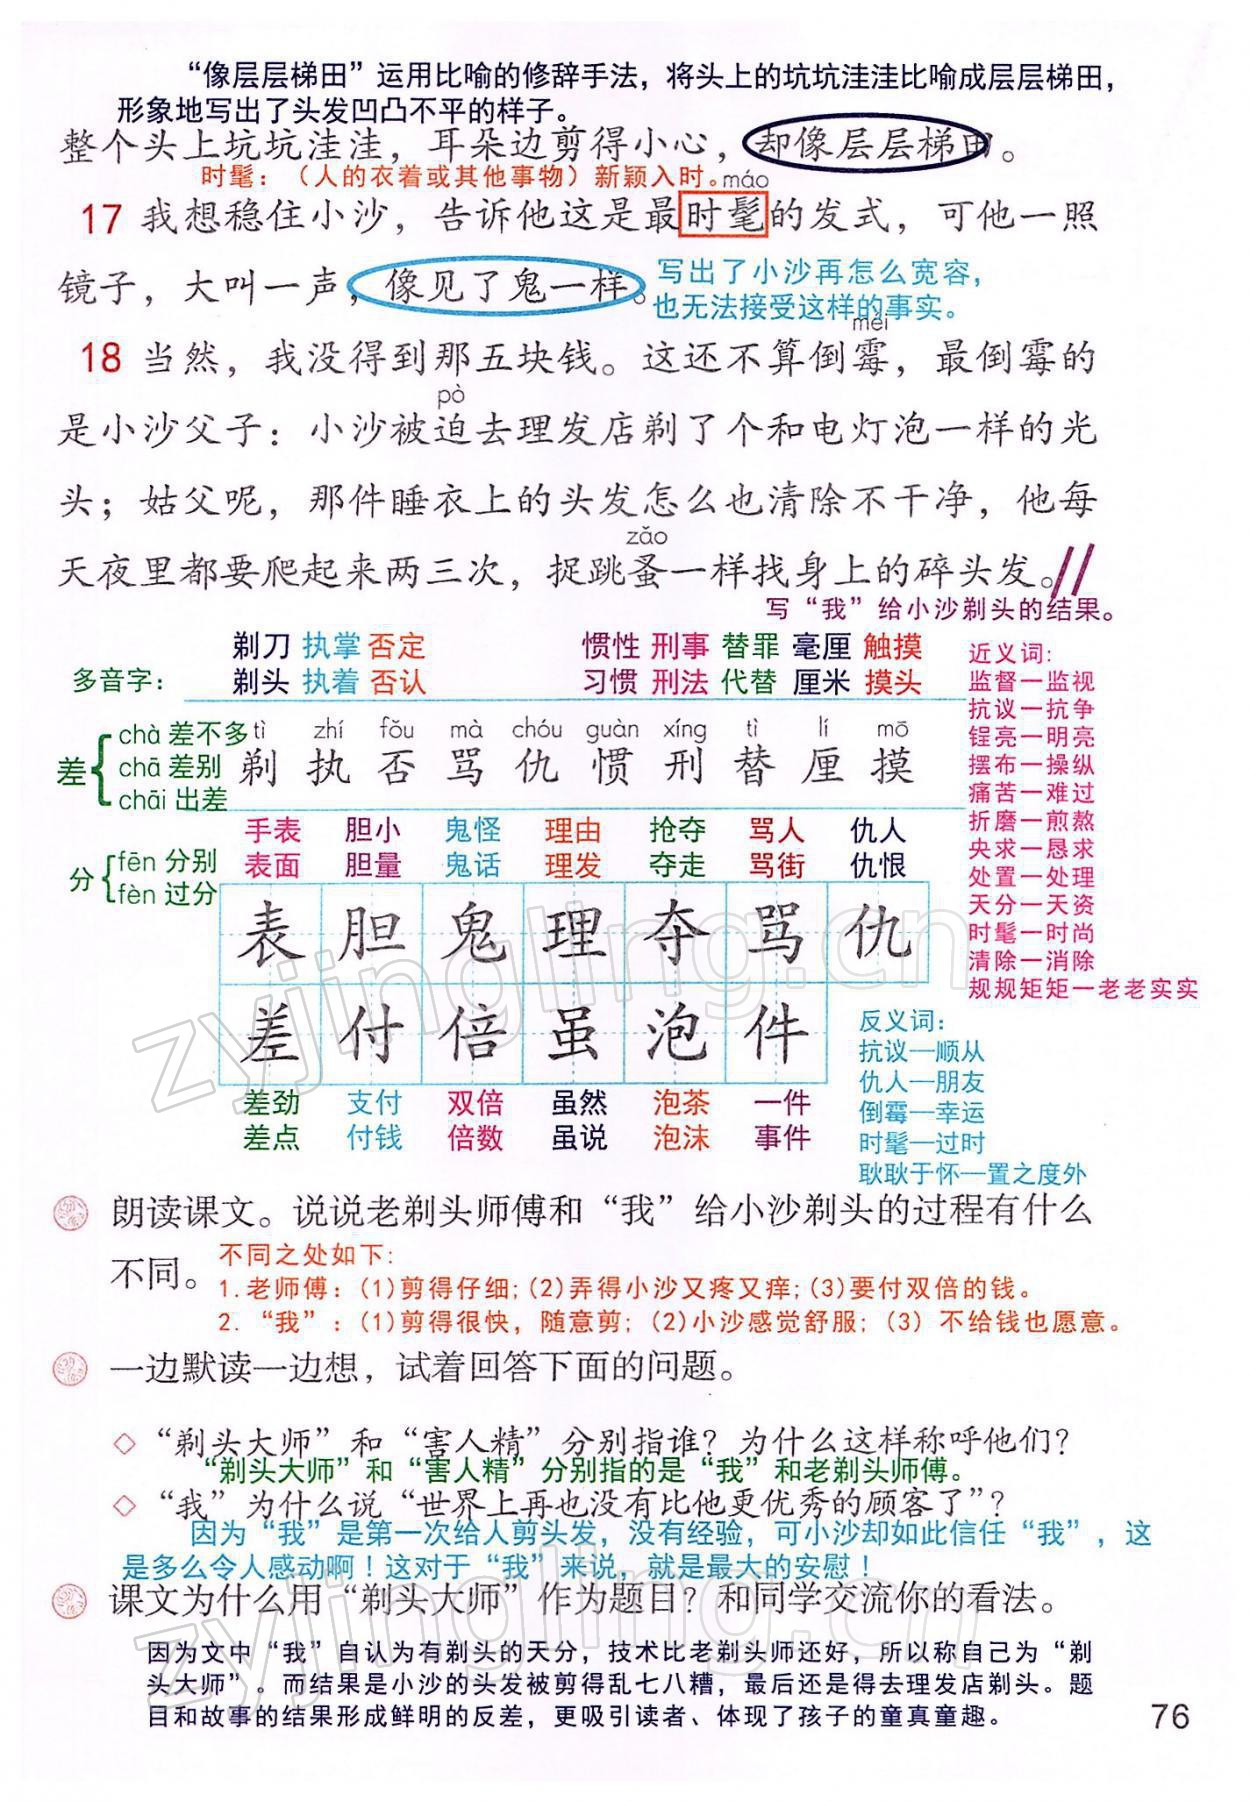 “像层层梯田”运用比喻的修辞手法，将头上的坑坑洼洼比喻成层层梯田，
形象地写出了头发凹凸不平的样子。
整个头上坑坑洼洼，耳朵边剪得小心，却像层层梯田。
时髦：（人的衣着或其他事物）新颖入时。
máo
17 我想稳住小沙，告诉他这是最时髦的发式，可他一照
镜子，大叫一声，像见了鬼一样。
写出了小沙再怎么宽容，
也无法接受这样的事实。
méi
18 当然，我没得到那五块钱。这还不算倒霉，最倒霉的
pò
是小沙父子：小沙被迫去理发店剃了个和电灯泡一样的光
头；姑父呢，那件睡衣上的头发怎么也清除不干净，他每
zǎo
天夜里都要爬起来两三次，捉跳蚤一样找身上的碎头发。
写“我”给小沙剃头的结果。
剃刀 执掌 否定 惯性 刑事 替罪 毫厘 触摸
剃头 执着 否认 习惯 刑法 代替 厘米 摸头
多音字：
差 chà 差不多
chā 差别
chāi 出差
tì zhí fǒu mà chóu guàn xíng tì lí mō
剃 执 否 骂 仇 惯 刑 替 厘 摸
分 fēn 分别
fèn 过分
手表 胆小 鬼怪 理由 抢夺 骂人 仇人
表面 胆量 鬼话 理发 夺走 骂街 仇恨
表 胆 鬼 理 夺 骂 仇
差 付 倍 虽 泡 件
差劲 支付 双倍 虽然 泡茶 一件
差点 付钱 倍数 虽说 泡沫 事件
近义词：
监督—监视
抗议—抗争
锃亮—明亮
摆布—操纵
痛苦—难过
折磨—煎熬
央求—恳求
处置—处理
天分—天资
时髦—时尚
清除—消除
规规矩矩—老老实实
反义词：
抗议—顺从
仇人—朋友
倒霉—幸运
时髦—过时
耿耿于怀—置之度外
朗读课文。说说老剃头师傅和“我”给小沙剃头的过程有什么
不同。
不同之处如下：
1.老师傅：(1)剪得仔细；(2)弄得小沙又疼又痒；(3)要付双倍的钱。
2.“我”：(1)剪得很快，随意剪；(2)小沙感觉舒服；(3) 不给钱也愿意。
一边默读一边想，试着回答下面的问题。
◇ “剃头大师”和“害人精”分别指谁？为什么这样称呼他们？
“剃头大师”和“害人精”分别指的是“我”和老剃头师傅。
◇ “我”为什么说“世界上再也没有比他更优秀的顾客了”？
因为“我”是第一次给人剪头发，没有经验，可小沙却如此信任“我”，这
是多么令人感动啊！这对于“我”来说，就是最大的安慰！
课文为什么用“剃头大师”作为题目？和同学交流你的看法。
因为文中“我”自认为有剃头的天分，技术比老剃头师还好，所以称自己为“剃
头大师”。而结果是小沙的头发被剪得乱七八糟，最后还是得去理发店剃头。题
目和故事的结果形成鲜明的反差，更吸引读者、体现了孩子的童真童趣。
76
zyjingling.cn
zyjingling.cn